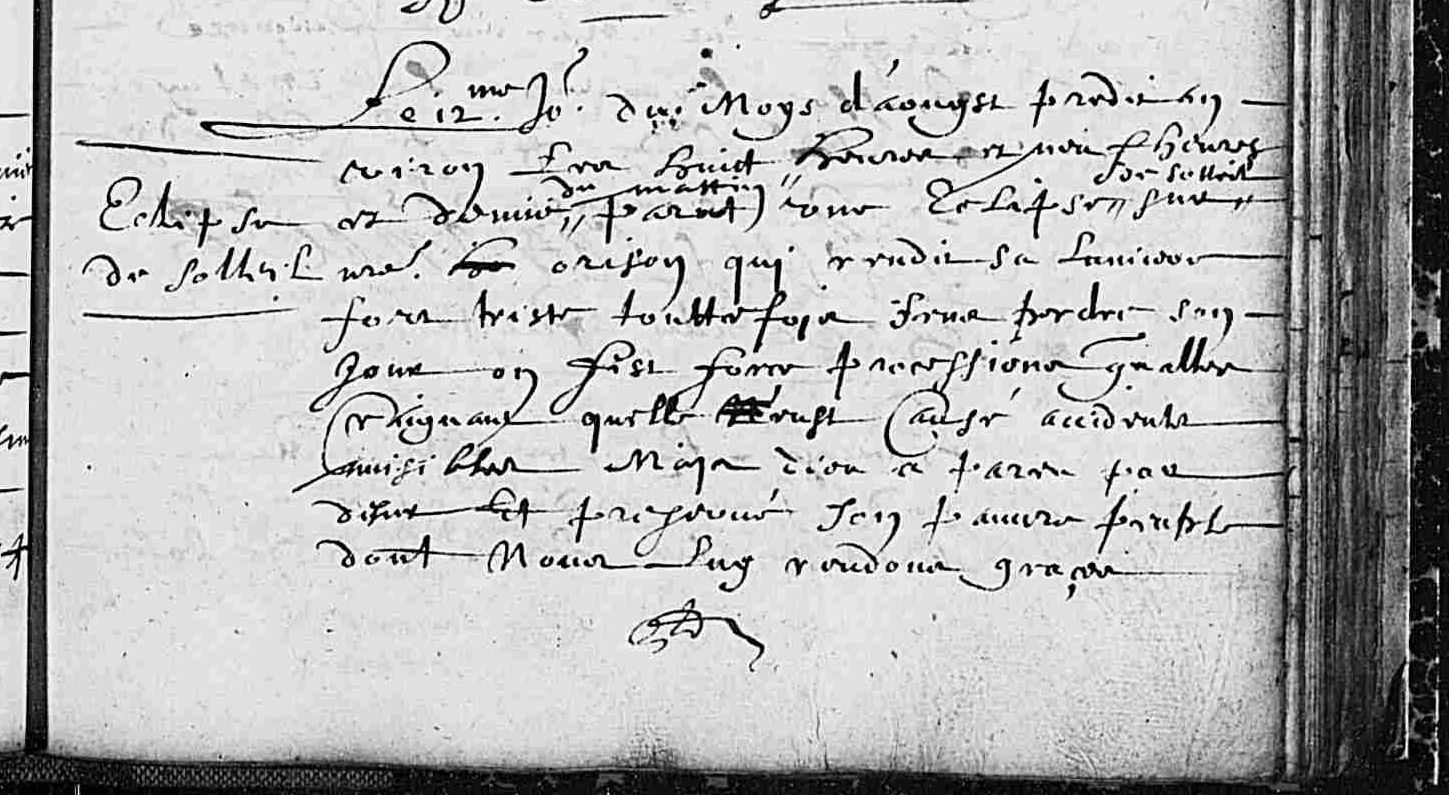 Le 12.me Jo.r du Moys d'aougst predit en
viron les huict heures et neuf heures
Eclipse
et demie du mattin parut une Eclipse de solleil sur
de solleil
nre. orison qui rendit sa lumiere
fort triste touttefois sans perdre son
jour on fist force processions generalles
craignant quelle eust causé accidents
nuisibles Mais dieu a paré par
dessus Et preservé son pauvre peuple
dont Nous luy rendons graces